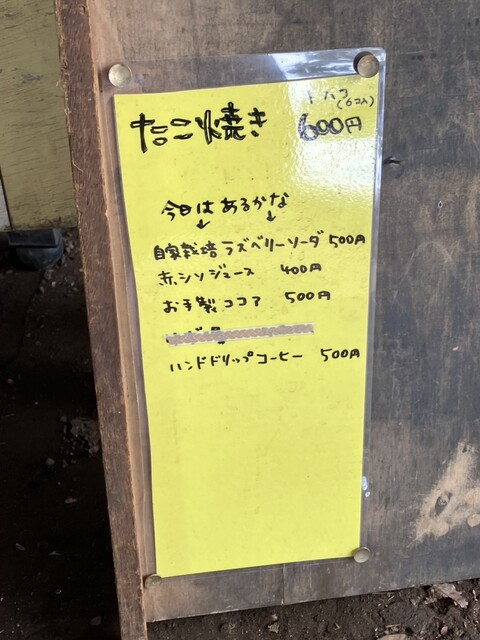 たこ焼き 1パコ(6コ入) 600円
今日はあるかな
↓ ↓
自家栽培ラズベリーソーダ 500円
赤シソジュース 400円
お手製ココア 500円
ハンドドリップコーヒー 500円